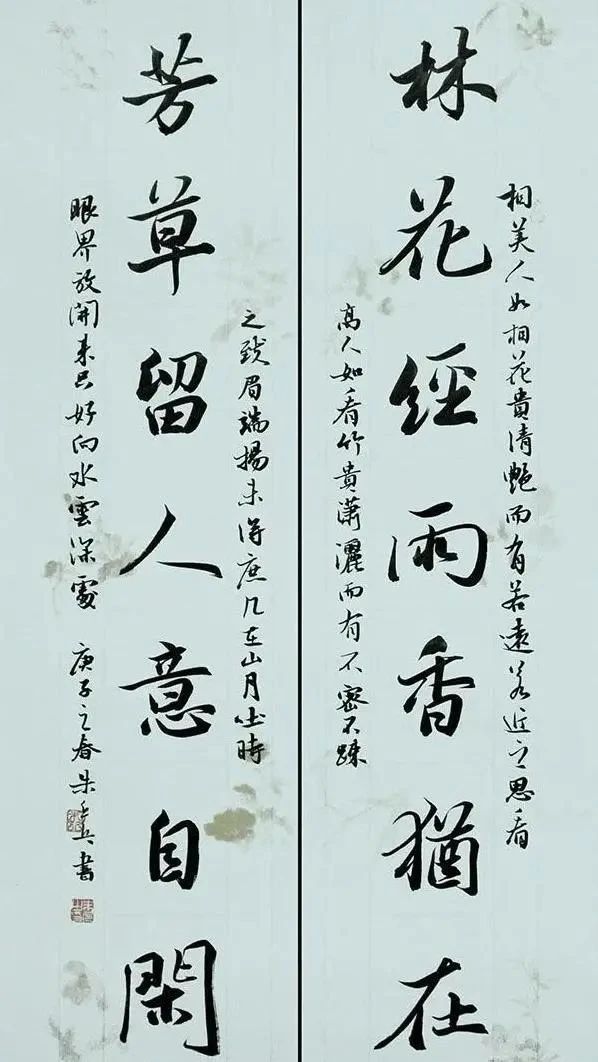 相美人如相花貴清艷而有若遠若近之思看
林花經雨香猶在
高人如看竹貴瀟灑而有不密不疎
之致眉端揚未得庶几在山月吐時
芳草留人意自閑
眼界放開来只好向水雲深處 庚子之春朱 書